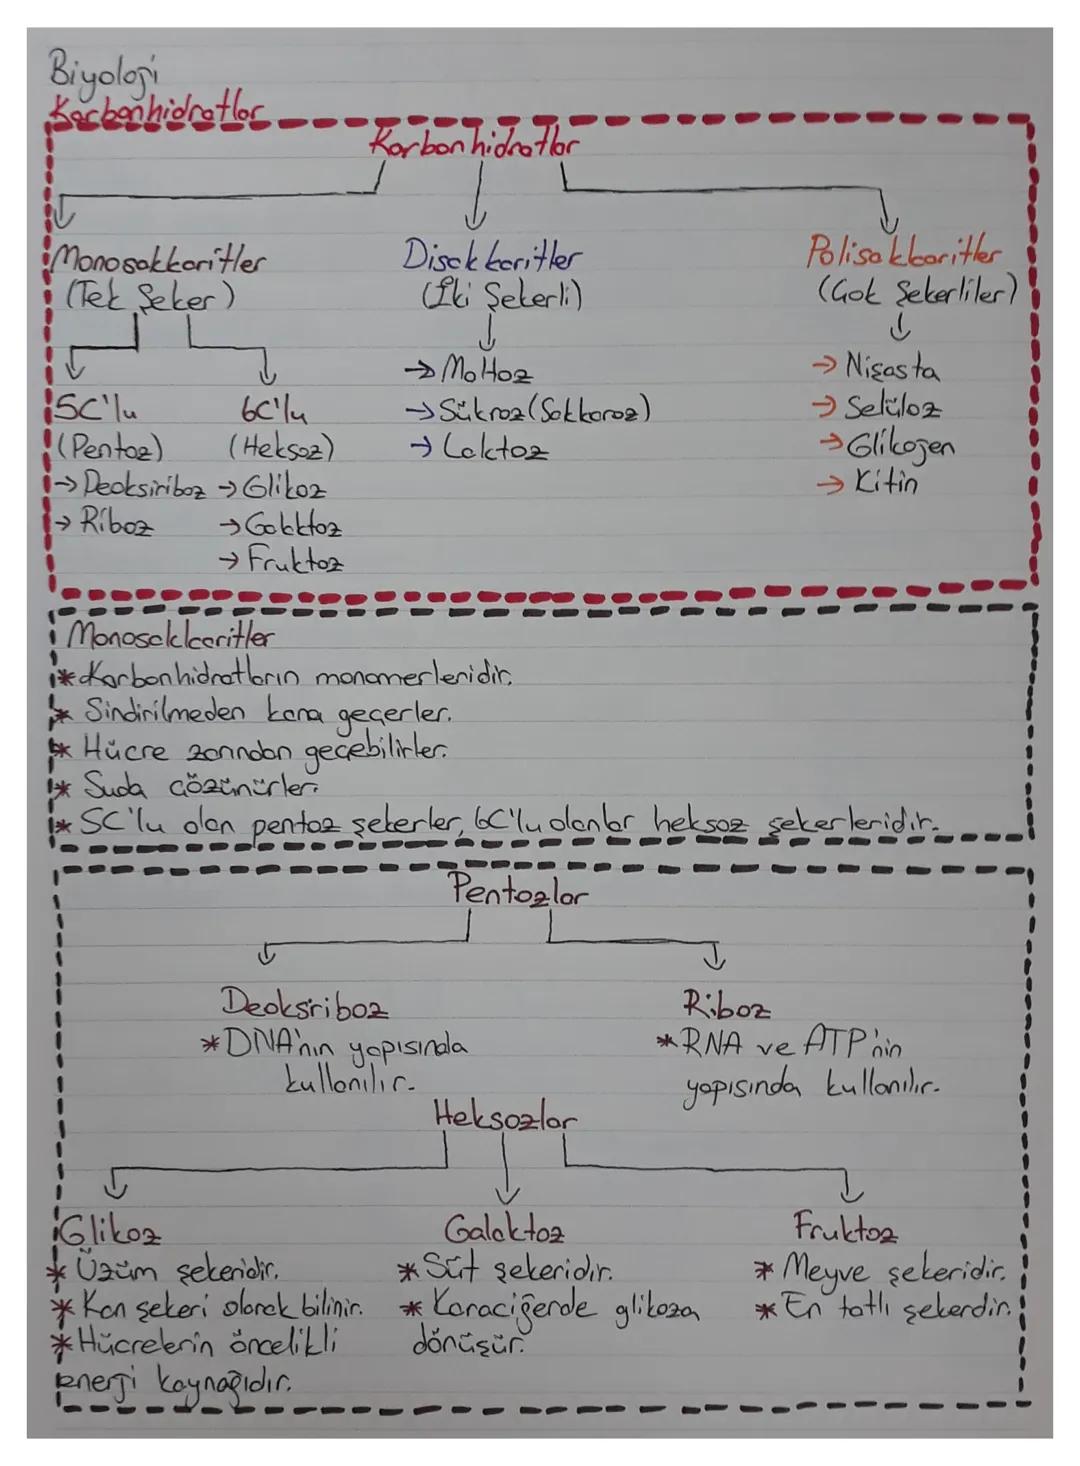 Biyoloji
Karbonhidratlar
Karbonhidratlar
Monosakkaritler
(Tek Şeker)
Disakkaritler
(İki Şekerli)
Polisakkaritler
(Çok Şekerliler)
5C'lu
(Pentoz)
→ Deoksiriboz
→ Riboz
6C'lu
(Heksoz)
→ Glikoz
→ Galaktoz
→ Fruktoz
→ Maltoz
→ Sükroz (Sakkaroz)
→ Laktoz
→ Nişasta
→ Selüloz
→ Glikojen
→ Kitin
Monosakkaritler
* Karbonhidratların monomerleridir.
* Sindirilmeden kana geçerler.
* Hücre zarından geçebilirler.
* Suda çözünürler.
* 5C'lu olan pentoz şekerler, 6C'lu olanlar heksoz şekerleridir.
Pentozlar
Deoksiriboz
* DNA'nın yapısında
kullanılır.
Riboz
* RNA ve ATP'nin
yapısında kullanılır.
Heksozlar
Glikoz
* Üzüm şekeridir.
* Kan şekeri olarak bilinir.
* Hücrelerin öncelikli
enerji kaynağıdır.
Galaktoz
* Süt şekeridir.
* Karaciğerde glikoza
dönüşür.
Fruktoz
* Meyve şekeridir.
* En tatlı şekerdir.